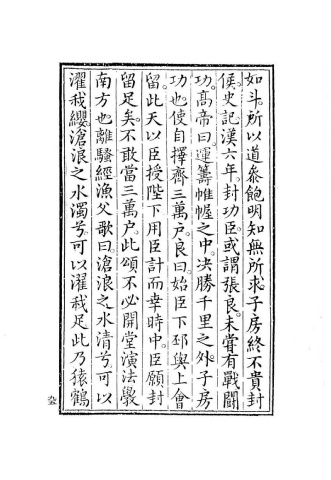 如斗。所以道。飽明知無所求。子房終不貴封
侯。史記漢六年。封功臣。或謂張良。未嘗有戰鬪
功。髙帝曰。運籌帷幄之中。決勝千里之外。子房
功也。使自擇齊三萬戸。良曰。始臣下邳與上會
留。此天以臣授陛下。用臣計而幸時中。臣願封
留足矣。不敢當三萬户。此頌不必開堂演法。嚴
南方也。離騷經漁父歌曰。滄浪之水清兮。可以
濯我纓。滄浪之水濁兮。可以濯我足。此乃猿鶴